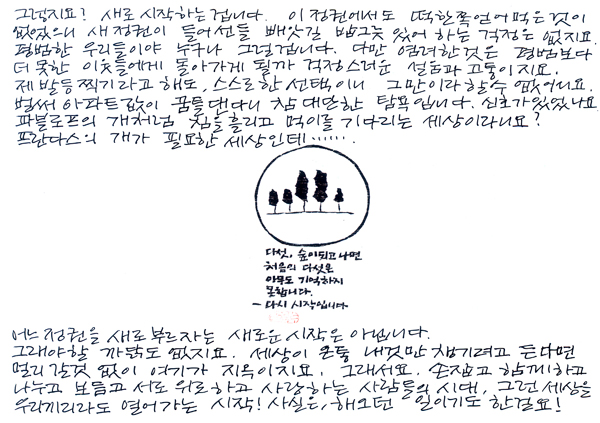 그렇지요? 새로 시작하는 겁니다. 이 정권에서도 떡 한쪽 얻어먹은 것이
없었으니 새 정권이 들어선들 빼앗길 밥그릇 있어 하는 걱정은 없지요.
평범한 우리들이야 누구나 그럴겁니다. 다만 염려한것은 평범보다
더 못한 이웃들에게 돌아가게 될까 걱정스러운 설움과 고통이지요.
제 발등찍기라고 해도, 스스로 한 선택이니 그만이라 할수 없어나요.
벌써 아파트값이 꿈틀댄다니 참 대단한 탐욕입니다. 신호가 있었나요.
파블로프의 개처럼 침을 흘리고 먹이를 기다리는 세상이라니요?
프란다스의 개가 필요한 세상인데.......
다섯, 숲이되고나면
처음의 다섯은
아무도 기억하지
못합니다.
- 다시 시작입니다
어느 정권을 새로 부르자는 새로운 시작은 아닙니다.
그래야할 까닭도 없지요. 세상이 온통 내것만 챙기려고 든다면
멀리 갈것 없이 여기가 지옥이지요. 그래서요. 손잡고 함께하고
나누고 보듬고 서로 위로하고 사랑하는 사람들의 시대, 그런 세상을
우리끼리라도 열어가는 시작! 사실은, 해오던 일이기도 한걸요!